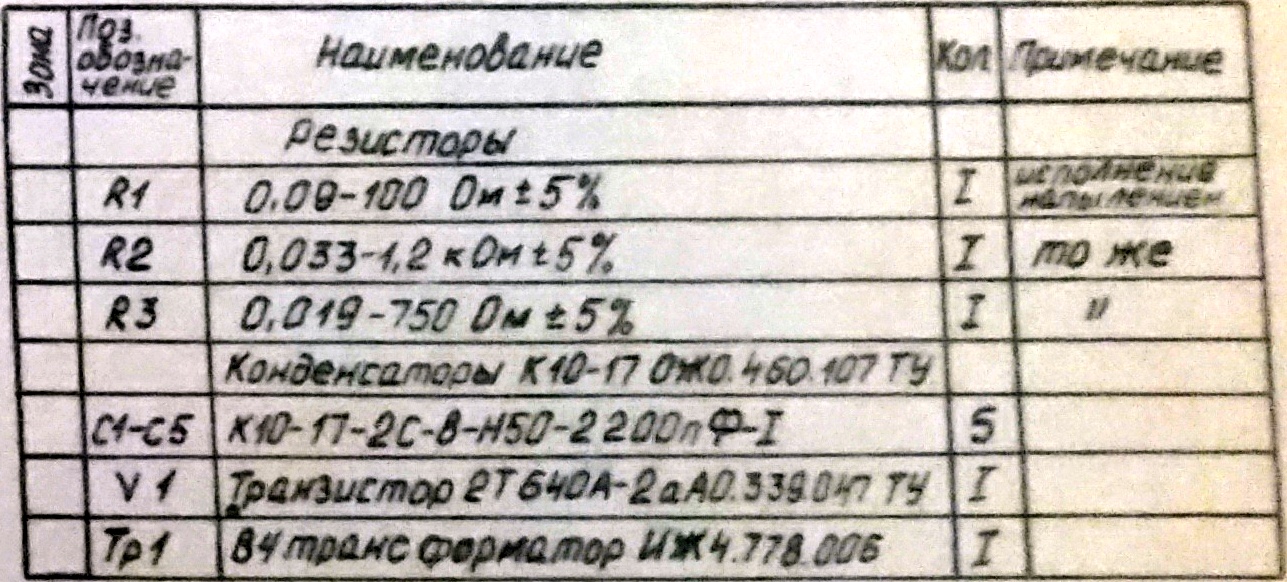 Зона Поз. обозна- чение Наименование Кол Примечание
Резисторы
R1 0,09-100 Ом ±5% I исполнение напылением
R2 0,033-1,2 кОм ±5% I то же
R3 0,019-750 Ом ±5% I "
Конденсаторы К10-17 ОЖ0.460.107 ТУ
С1-С5 К10-17-2С-В-Н50-2200пФ-I 5
V1 Транзистор 2Т640А-2 аА0.339.047 ТУ I
Тр1 ВЧ трансформатор ИЖ4.778.006 I